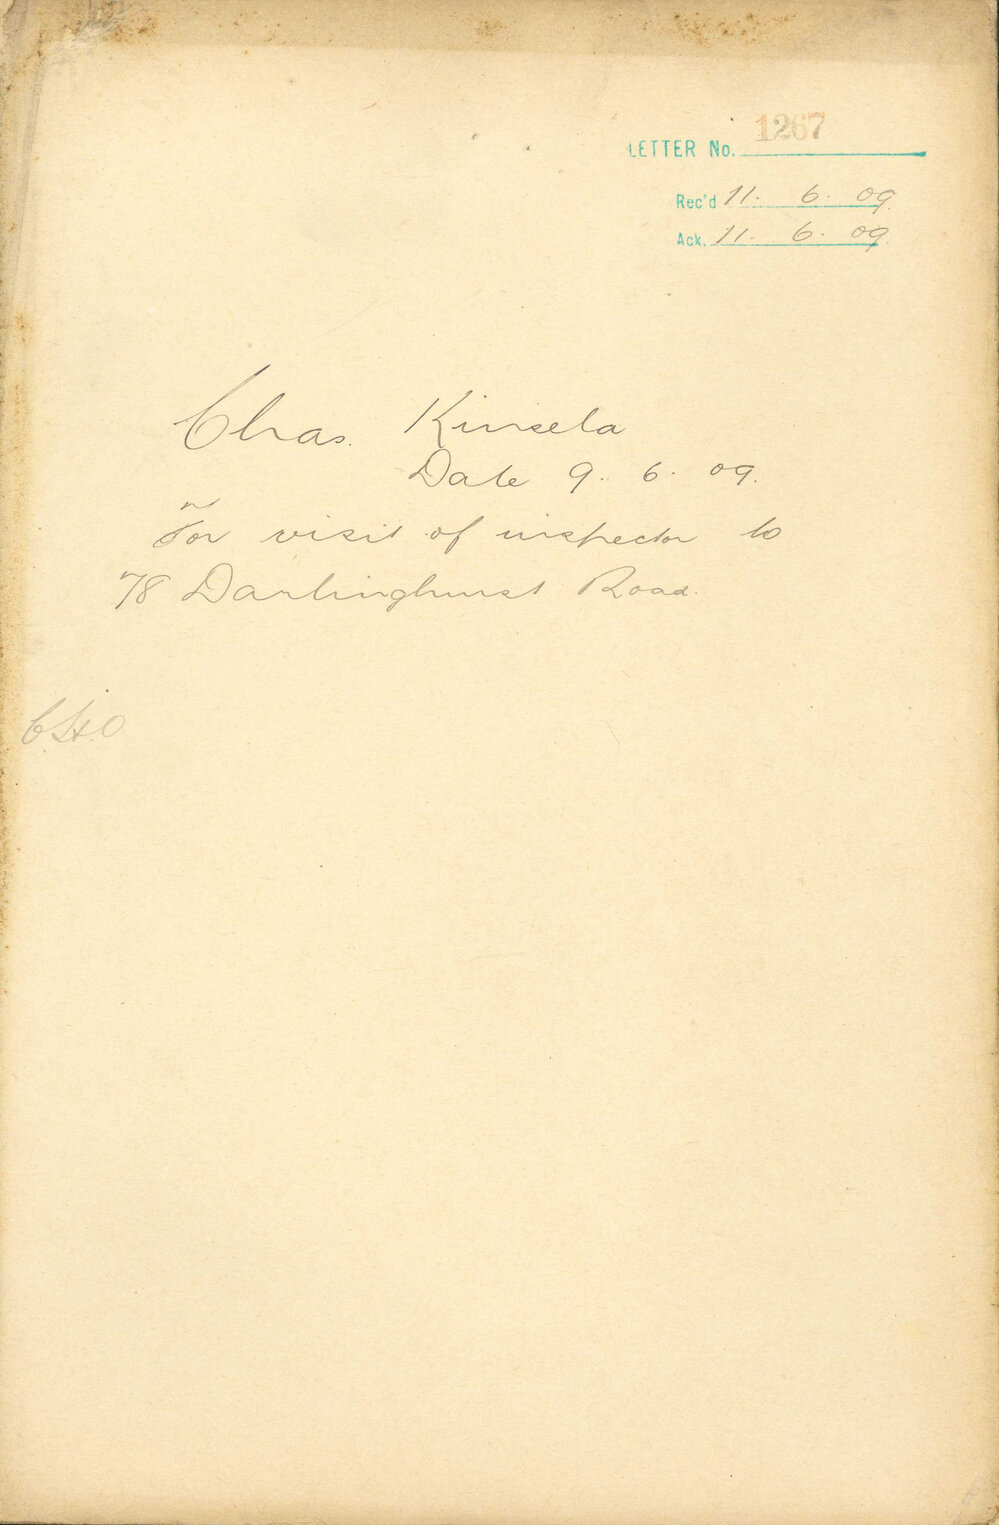 1267
LETTER No.
Rec'd 11. 6. 09.
Ack. 11. 6. 09.
Chas. Kinsela
Date 9. 6. 09.
For visit of inspector to
78 Darlinghurst Road.
C.H.O